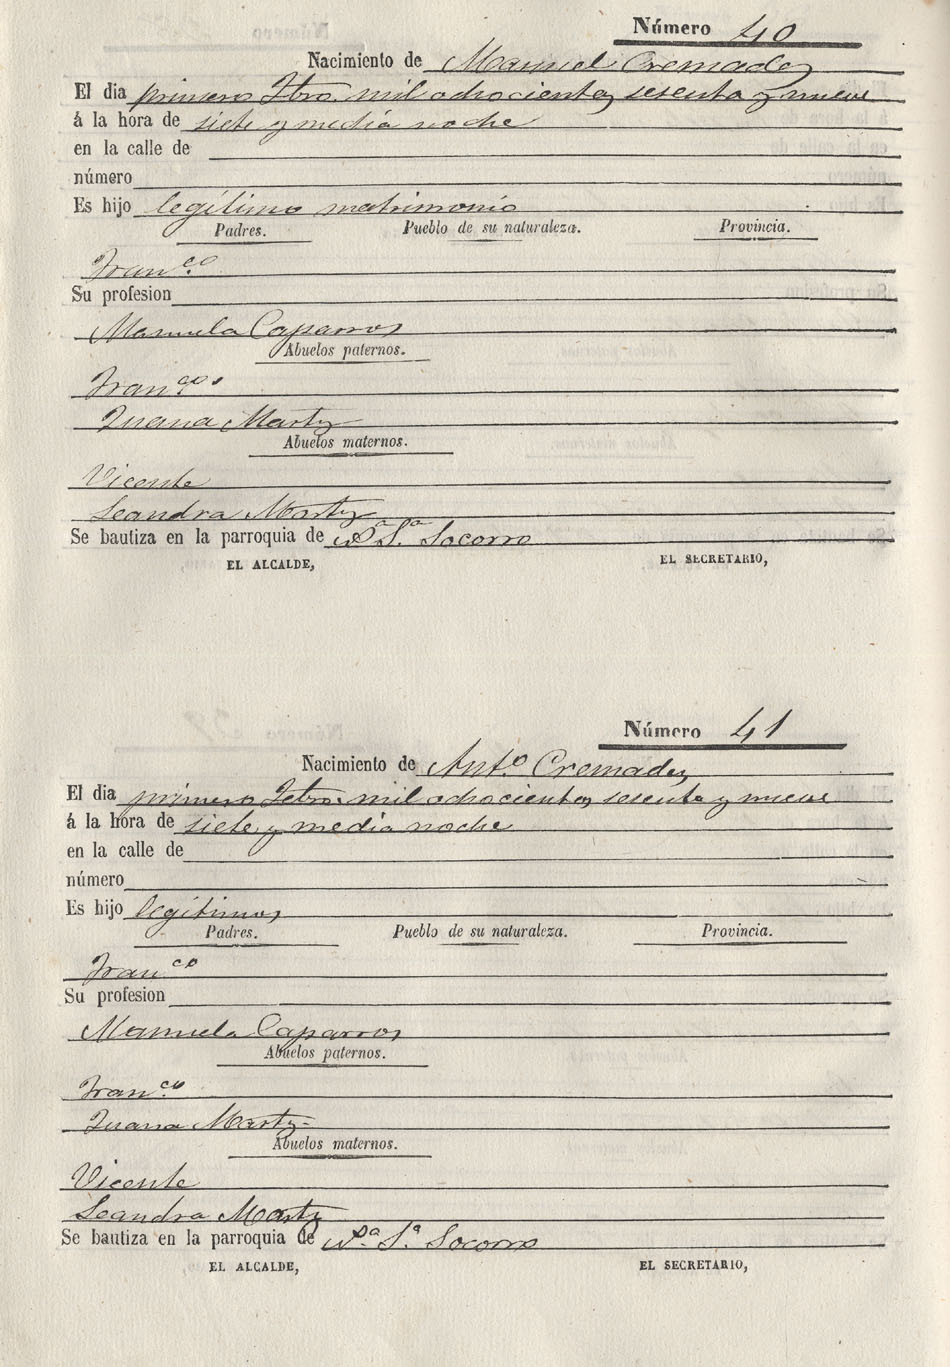 Número 40
Nacimiento de Manuel Cremades
El dia primero mil ochocientos sesenta y nueve
á la hora de siete y media noche
en la calle de
número
Es hijo legítimo matrimonio
Padres. Pueblo de su naturaleza. Provincia.
Franco
Su profesion
Manuela Caparros
Abuelos paternos.
Franco
Juana Martz
Abuelos maternos.
Vicente
Leandra Martz
Se bautiza en la parroquia de Na Sa Socorro
EL ALCALDE, EL SECRETARIO,
Número 41
Nacimiento de Anto Cremades
El dia primero mil ochocientos sesenta y nueve
á la hora de siete y media noche
en la calle de
número
Es hijo legítimos
Padres. Pueblo de su naturaleza. Provincia.
Franco
Su profesion
Manuela Caparros
Abuelos paternos.
Franco
Juana Martz
Abuelos maternos.
Vicente
Leandra Martz
Se bautiza en la parroquia de Na Sa Socorro
EL ALCALDE, EL SECRETARIO,